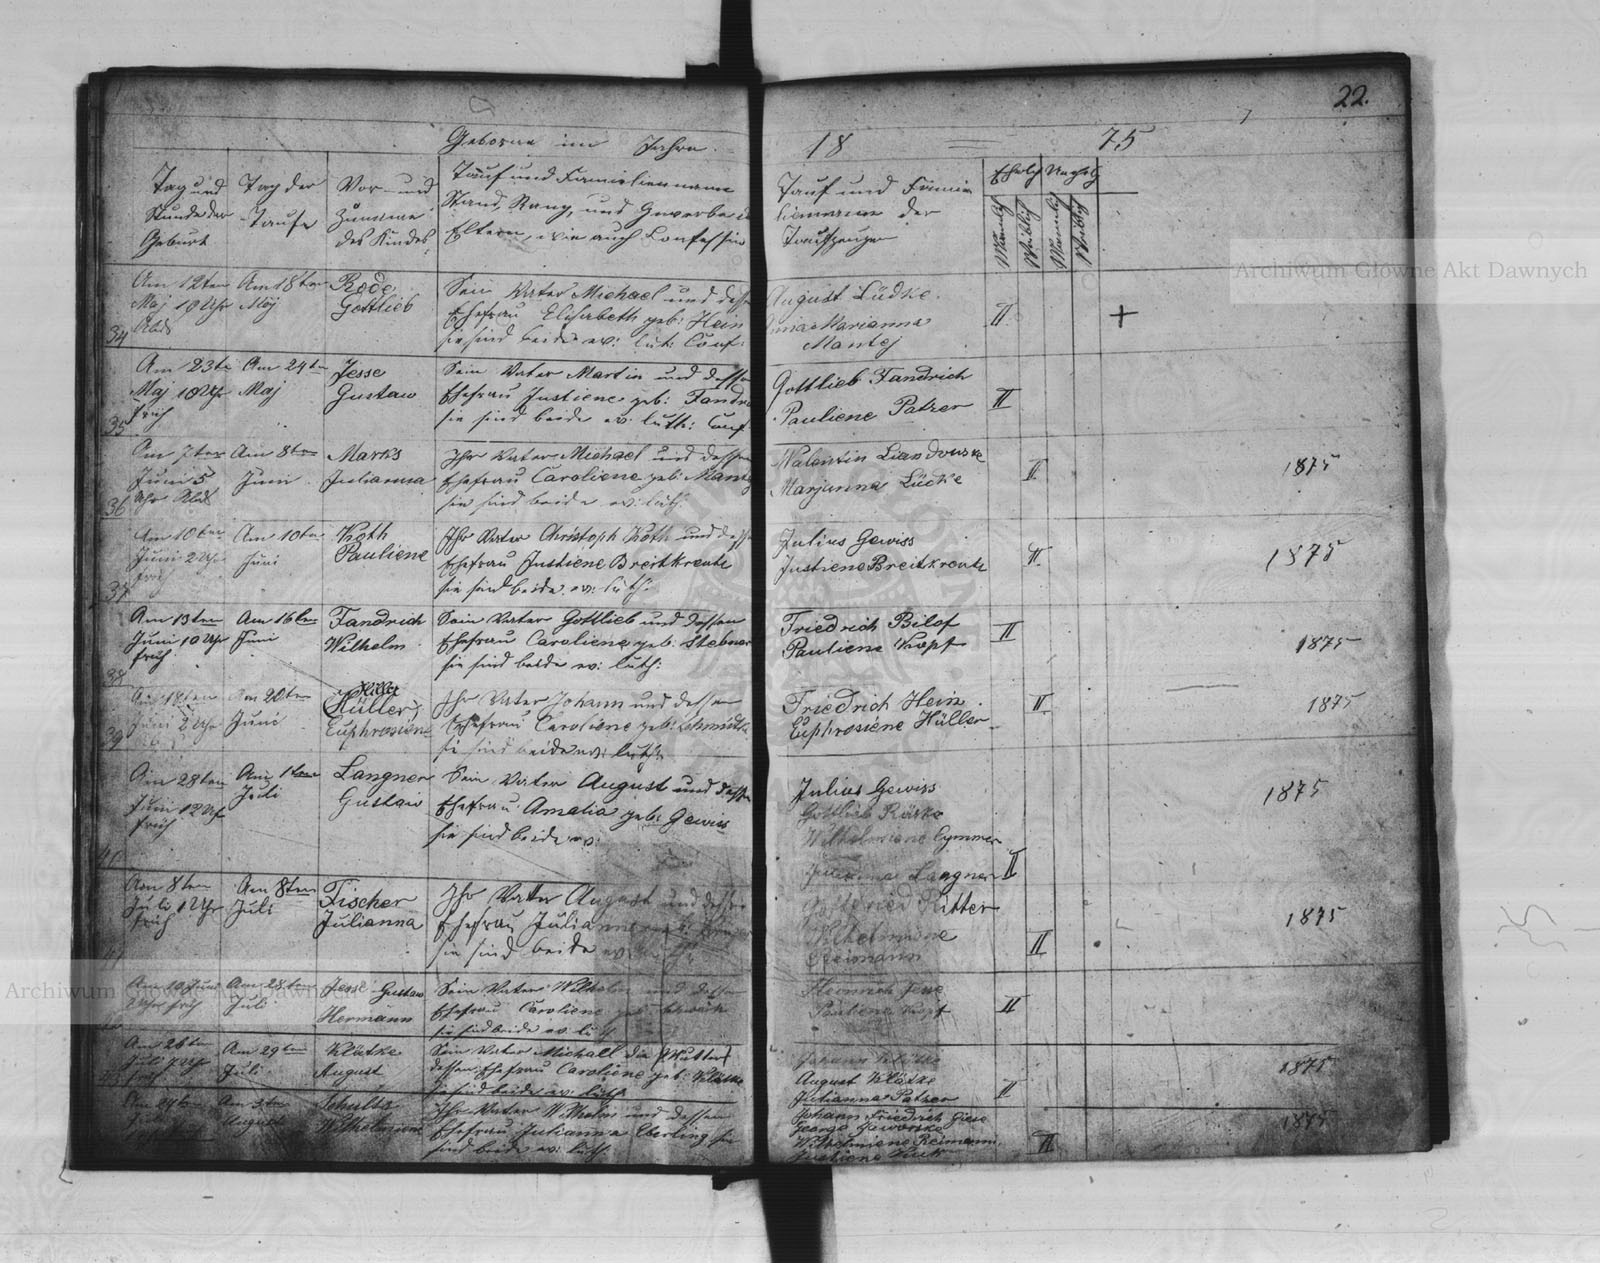 22.
Geborne im Jahre
18 75
Tag und
Stunde der
Geburt
Tag der
Taufe
Vor- und
Zuname
des Kindes
Tauf und Familiennamen
Stand, Rang, und Gewerbe der
Eltern, wie auch Confession
Tauf und Famili
liennamen der
Taufzeugen
Ehelich Unehelich
Männlich
Weiblich
Männlich
Weiblich
34
Am 12ten
Maj 10 Uhr
Abds
Am 18ten
Maj
Rode
Gottlieb
Sein Vater Michael und dessen
Ehefrau Elisabeth geb: Hein
sie sind beide ev: lut: Conf:
August Lüdke
Anna Marianna
Mantej
II
+
35
Am 23ten
Maj 10 Uhr
früh
Am 24ten
Maj
Jesse
Gustaw
Sein Vater Martin und dessen
Ehefrau Justiene geb: Fandri
sie sind beide ev: luth: Conf.
Gottlieb Fandrich
Pauliene Patzer
II
36
Am 7ten
Juni 5
Uhr Abds
Am 8ten
Juni
Marks
Julianna
Ihr Vater Michael und dessen
Ehefrau Caroliene geb: Mantej
sie sind beide ev: luth:
Walentin Liandouske
Marjanna Lüdke
II
1875
37
Am 10ten
Juni 2 Uhr
früh
Am 10ten
Juni
Koth
Pauliene
Ihr Vater Christoph Koth und dessen
Ehefrau Justiene Breitkreutz
sie sind beide ev: luth:
Julius Gewiss
Justiene Breitkreutz
II
1875
38
Am 13ten
Juni 10 Uhr
früh
Am 16ten
Juni
Fandrich
Wilhelm
Sein Vater Gottlieb und dessen
Ehefrau Caroliene geb: Stebner
sie sind beide ev: luth:
Friedrich Bilof
Pauliene Kopf
II
1875
39
Am 18ten
Juni 2 Uhr
Am 20ten
Juni
Hiller
Hüller
Euphrosiene
Ihr Vater Johann und dessen
Ehefrau Caroliene geb: Schmidtke
sie sind beide ev: luth:
Friedrich Hein
Euphrosiene Hüller
II
1875
Am 28ten
Juni 12 Uhr
früh
Am 1ten
Juli
Langner
Gustaw
Sein Vater August und dessen
Ehefrau Amalia geb: Gewiss
sie sind beide ev:
Julius Gewiss
Gottlieb Röske
Wilhelmiene Cymmer
Julianna Langner
II
1875
41
Am 8ten
Juli 1 Uhr
früh
Am 8ten
Juli
Fischer
Julianna
Ihr Vater August und dessen
Ehefrau Julianna geb:
sie sind beide ev: luth
Gottfried Ritter
Wilhelmiene
Reimann
II
1875
Am 10 Juni
Uhr früh
Am 28ten
Juli
Jesse Gustaw
Hermann
Sein Vater Wilhelm und dessen
Ehefrau Caroliene geb:
sie sind beide ev. luth
Heinrich Jesse
Pauliene Kopf
II
Am 26ten
Juli 7 Uhr
früh
Am 29ten
Juli
Klatke
August
Sein Vater Michall die (Mutter)
dessen Ehefrau Caroliene geb: Klatke
sie sind beide ev: luth
Johann Klatke
August Klatke
Julianna Patzer
II
1875
Am 3ten
August
Schultz
Wilhelmiene
Ihr Vater Wilhelm und dessen
Ehefrau Julianna Eberling sie
sind beide ev: luth:
Johann Friedrich Giese
George Jaworske
Wilhelmiene Reimann
Justiene
II
1875
Archiwum Główne Akt Dawnych
Archiwum Główne Akt Dawnych